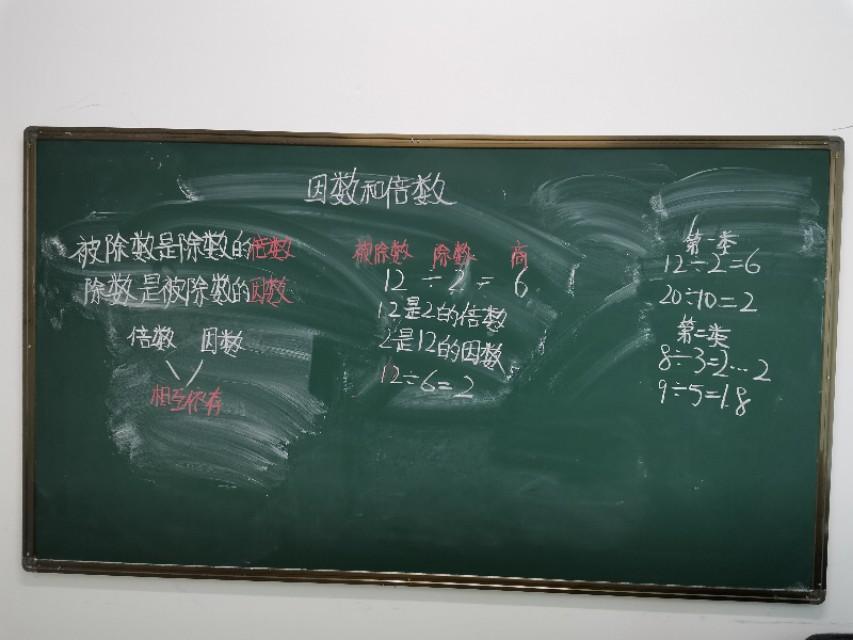 因数和倍数
被除数是除数的倍数
除数是被除数的因数
倍数 因数
相互依存
被除数 除数 商
12 ÷ 2 = 6
12是2的倍数
2是12的因数
12÷6=2
第一类
12÷2=6
20÷10=2
第二类
8÷3=2…2
9÷5=1.8